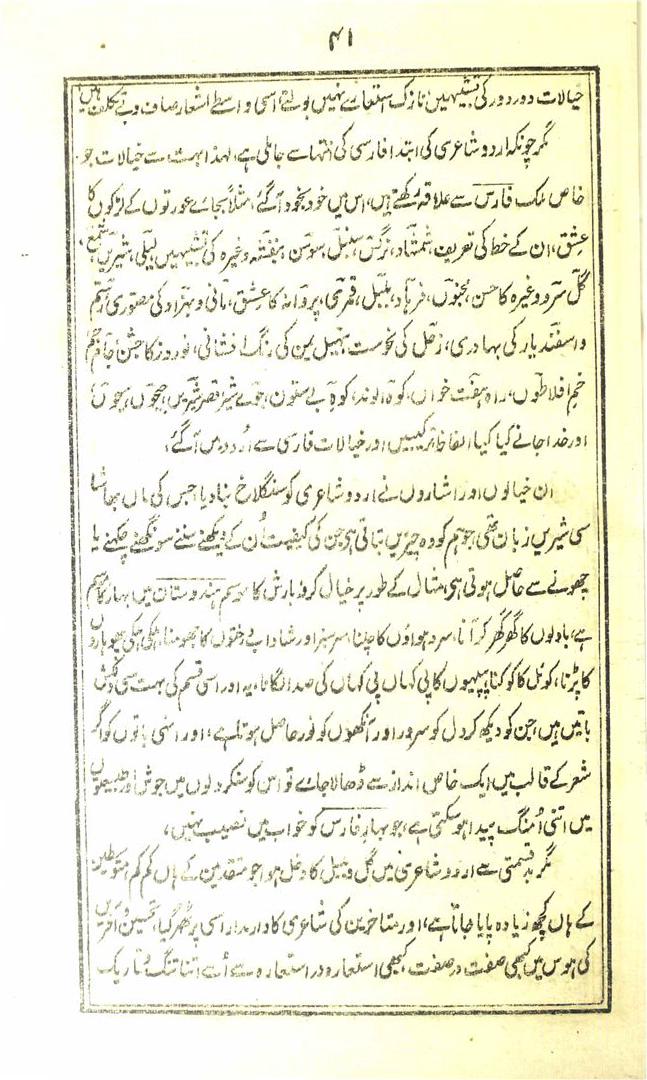 ۴۱
خیالات دور دور کی تشبیہیں نازک استعارے نہیں بولتے، اسی واسطے اشعار صاف و بے تکلف ہیں،
مگر چونکہ اردو شاعری کی ابتدا فارسی کی انتہا سے جا ملی ہے، لہذا بہت سے خیالات جو
خاص ملک فارس سے علاقہ رکھتے ہیں، اس میں خود بخود آ گئے، مثلاً بجائے عورتوں کے لڑکوں کا
عشق، ان کے خط کی تعریف، شمشاد، نرگس، سنبل، سوسن، بنفشہ وغیرہ کی تشبیہیں، لیلیٰ، شیریں، شمع،
گل، سرو وغیرہ کا حسن، مجنوں، فرہاد، بلبل، قمری، پروانہ کا عشق، مانی و بہزاد کی مصوری، رستم
و اسفندیار کی بہادری، زحل کی نحوست، سہیل یمن کی رنگ افشانی، نوروز کا جشن، جام جم
خم افلاطوں، راہ ہفت خواں، کوہ الوند، کوہ بے ستون، جوئے شیر، قصر شیریں، جیحوں، سیحوں،
اور خدا جانے کیا کیا، الفاظ، ترکیبیں اور خیالات فارسی سے اُردو میں آ گئے،
ان خیالوں اور اشاروں نے اردو شاعری کو سنگلاخ بنا دیا جس کی ماں بھاشا
سی شیریں زبان تھی، جو ہم کو وہ چیزیں بتاتی ہی جن کی کیفیت اُن کے دیکھنے سننے سونگھنے چکھنے یا
چھونے سے حاصل ہوتی ہی، مثال کے طور پر خیال کرو بارش کا موسم ہندوستان میں بہار کا موسم
ہے، بادلوں کا گھر گھر کر آنا، سرد ہواؤں کا چلنا، سرسبز اور شاداب درختوں کا جھومنا، ہلکی ہلکی پھوہاروں
کا پڑنا، کوئل کا کوکنا، پپیہوں کا پی کہاں پی کہاں کی صدا لگانا، یہ اور اسی قسم کی بہت سی دلکش
باتیں ہیں، جن کو دیکھ کر دل کو سرور اور آنکھوں کو نور حاصل ہوتا ہے، اور انہی باتوں کو اگر
شعر کے قالب میں ایک خاص انداز سے ڈھالا جاے تو اس کو سنکر دلوں میں جوش اور طبیعتوں
میں اتنی اُمنگ پیدا ہو سکتی ہے، جو بہار فارس کو خواب میں نصیب نہیں،
مگر بدقسمتی سے اردو شاعری میں گل و بلبل کا دخل ہوا جو متقدمین کے ہاں کم کم، متوسطین
کے ہاں کچھ زیادہ پایا جاتا ہے، اور متاخرین کی شاعری کا دار مدار اسی پر ٹھہر گیا، تحسین و آفریں
کی ہوس میں کبھی صفت در صفت کبھی استعارہ در استعارہ سے اُسے اتنا تنگ و تاریک